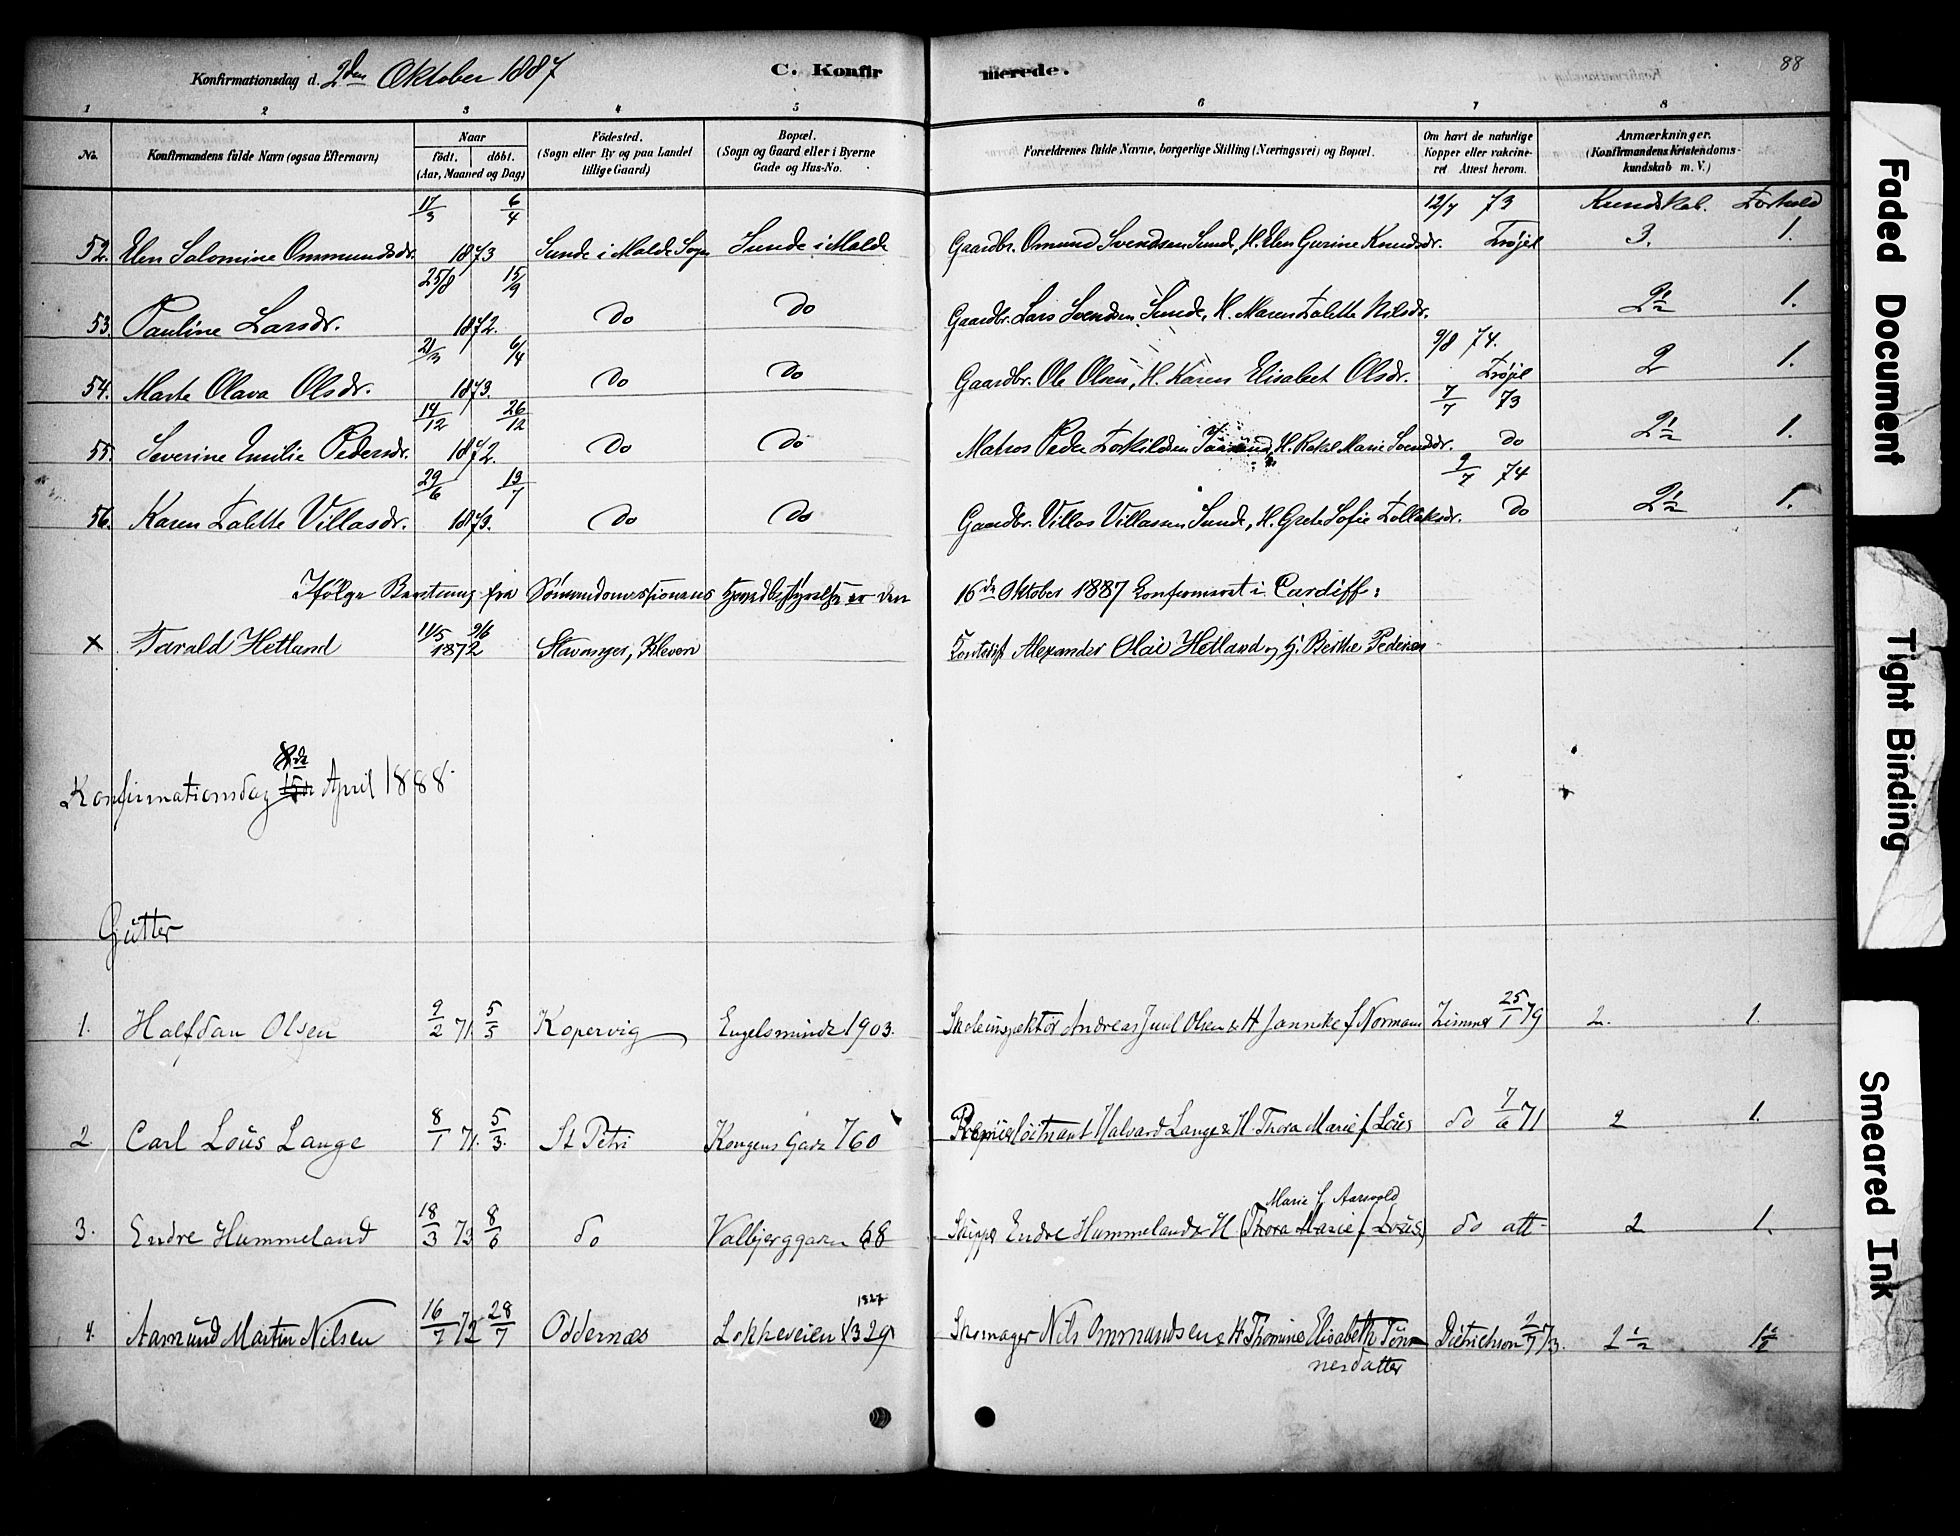 Konfirmationsdag d. 2den Oktober 1887
C. Konfirmerede.
88
1 2 3 4 5 6 7 8
No.
Konfirmandens fulde Navn (ogsaa Efternavn)
Naar
födt. döbt.
(Aar, Maaned og Dag)
Födested.
(Sogn eller By og paa Landet
tillige Gaard)
Bopæl.
(Sogn og Gaard eller i Byerne
Gade og Hus-No.
Forældrenes fulde Navne, borgerlige Stilling (Næringsvei) og Bopæl.
Om havt de naturlige
Kopper eller vakcine-
ret Attest herom.
Anmærkninger.
(Konfirmandens Kristendoms-
kundskab m. V.)
17/3 6/4 12/7 73 Kundskab. Forhold
52. Elen Salomine Ommundsdr. 1873 Sunde i Malde Sogn Sunde i Malde Gaardbr. Omund Svendsen Sunde, H. Elen Gurine Knudsdr. 3. 1.
25/8 15/9
53. Pauline Larsdr. 1872. do do Gaardbr. Lars Svendsen Sunde, H. Maren Talette Nilsdr. 2½ 1.
21/3 6/4 9/8 74.
54. Marte Olava Olsdr. 1873. do do Gaardbr. Ole Olsen, H. Karen Elisabet Olsdr. 2 1.
14/12 26/12 7/7 73
55. Severine Emilie Pedersdr. 1872. do do Matros Peder H. Rakel Marie Svendsdr. do 2½ 1.
29/6 13/7 9/7 74
56. Karen Talette Villasdr. 1873. do do Gaardbr. Villas Villassen Sunde, H. Grete Sofie Tollaksdr. do 2½ 1.
Ifölge fra Sömandsmissionens Hovedbestyrelse er den 16de Oktober 1887 Konfirmeret i Cardiff:
x Tarald Hetland 11/5 9/6 1872 Stavanger, Kleven Alexander Olai Hetland og H. Berthe Pedersen
Konfirmationsdag 15de 8de April 1888.
Gütter
1. Halfdan Olsen 9/2 71. 5/5 Kopervig Engelsminde 1903. Skoleinspektör Andreas Juul Olsen & H Jannike f Normann Zimmer 25/1 79 2. 1.
2 Carl Loüs Lange 8/1 71. 5/3. St Petri Kongens Gade 760 Premierlöitnant Halvard Lange & H. Thora Marie f Loüs do 7/6 71 2 1.
Marie f. Aarsvold
3. Endre Hummeland 18/3 73 8/6 do Valbjerggaden 68 Skipper Endre Hummeland & H (Thora Marie f Loüs) do att 2 1.
1327
4. Aamund Martin Nilsen 16/7 72 28/7 Oddernæs Lokkeveien 1329 Skomager Nils Ommundsen & H Thomine Elisabeth Tön-
nesdatter Dietrichson 2/7 73. 2½ 1½
Faded Document
Tight Binding
Smeared Ink